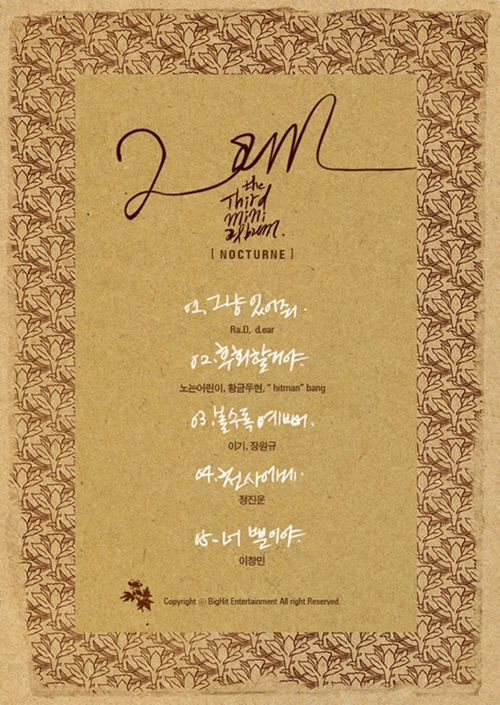 2am
the
Third
mini
album.
[ NOCTURNE ]
01. 그냥 있어줘.
Ra.D, d.ear
02. 후회할거야.
노는어린이, 황금두현, " hitman" bang
03. 볼수록 예뻐.
이기, 장원규
04. 천사에게.
정진운
05- 너 뿐이야.
이창민
Copyright ⓒ BigHit Entertainment All right Reserved.